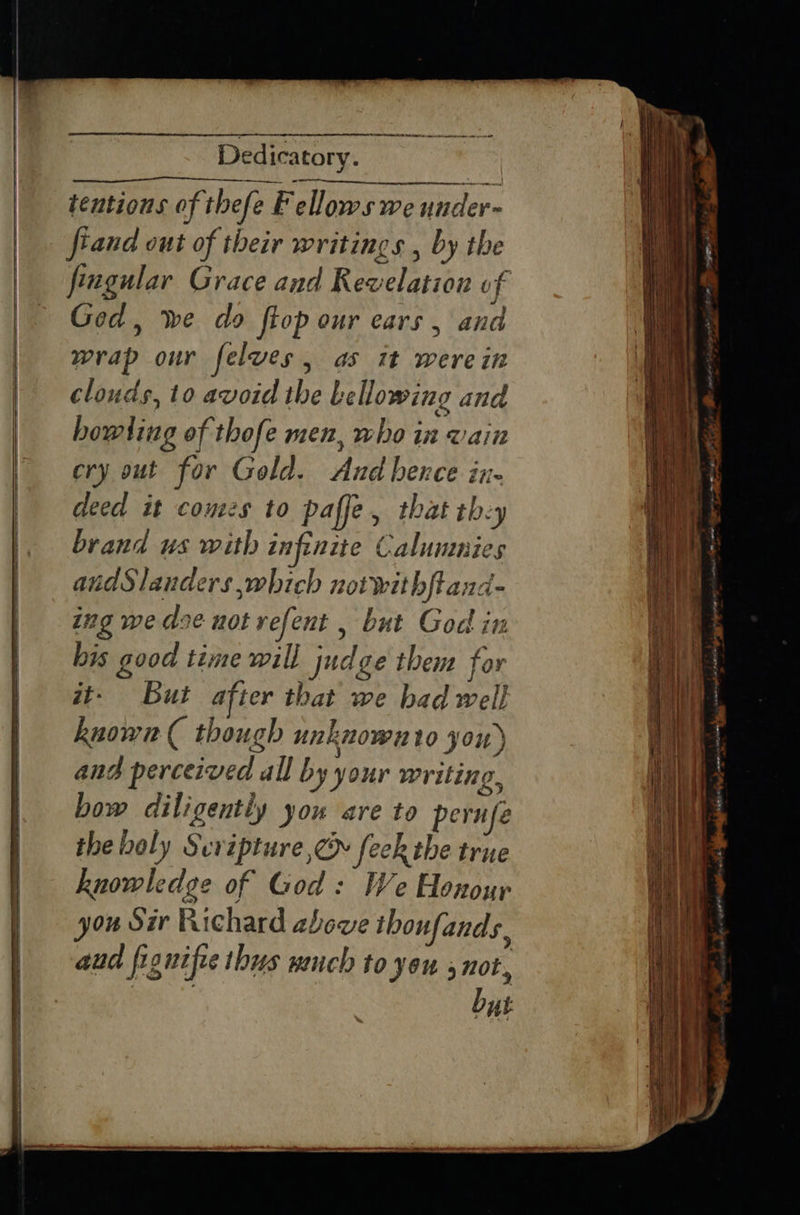 Dedicatory.
tentions of theſe Fellows we under-
ſtand out of their writings , by the
ſingular Grace and Revelation of
God , we do ſtop our ears , and
wrap our ſelves , as it were in
clouds, to avoid the bellowing and
howling of thoſe men, who in vain
cry out for Gold. And hence in-
deed it comes to paſſe , that they
brand us with infinite Calumnies
and Slanders , which notwithſtand-
ing we doe not reſent , but God in
his good time will judge them for
it. But after that we had well
known ( though unknown to you)
and perceived all by your writing,
how diligently you are to peruſe
the holy Scripture , & ſeek the true
knowledge of God : We Honour
you Sir Richard above thouſands,
and ſignifie thus much to you , not,
but